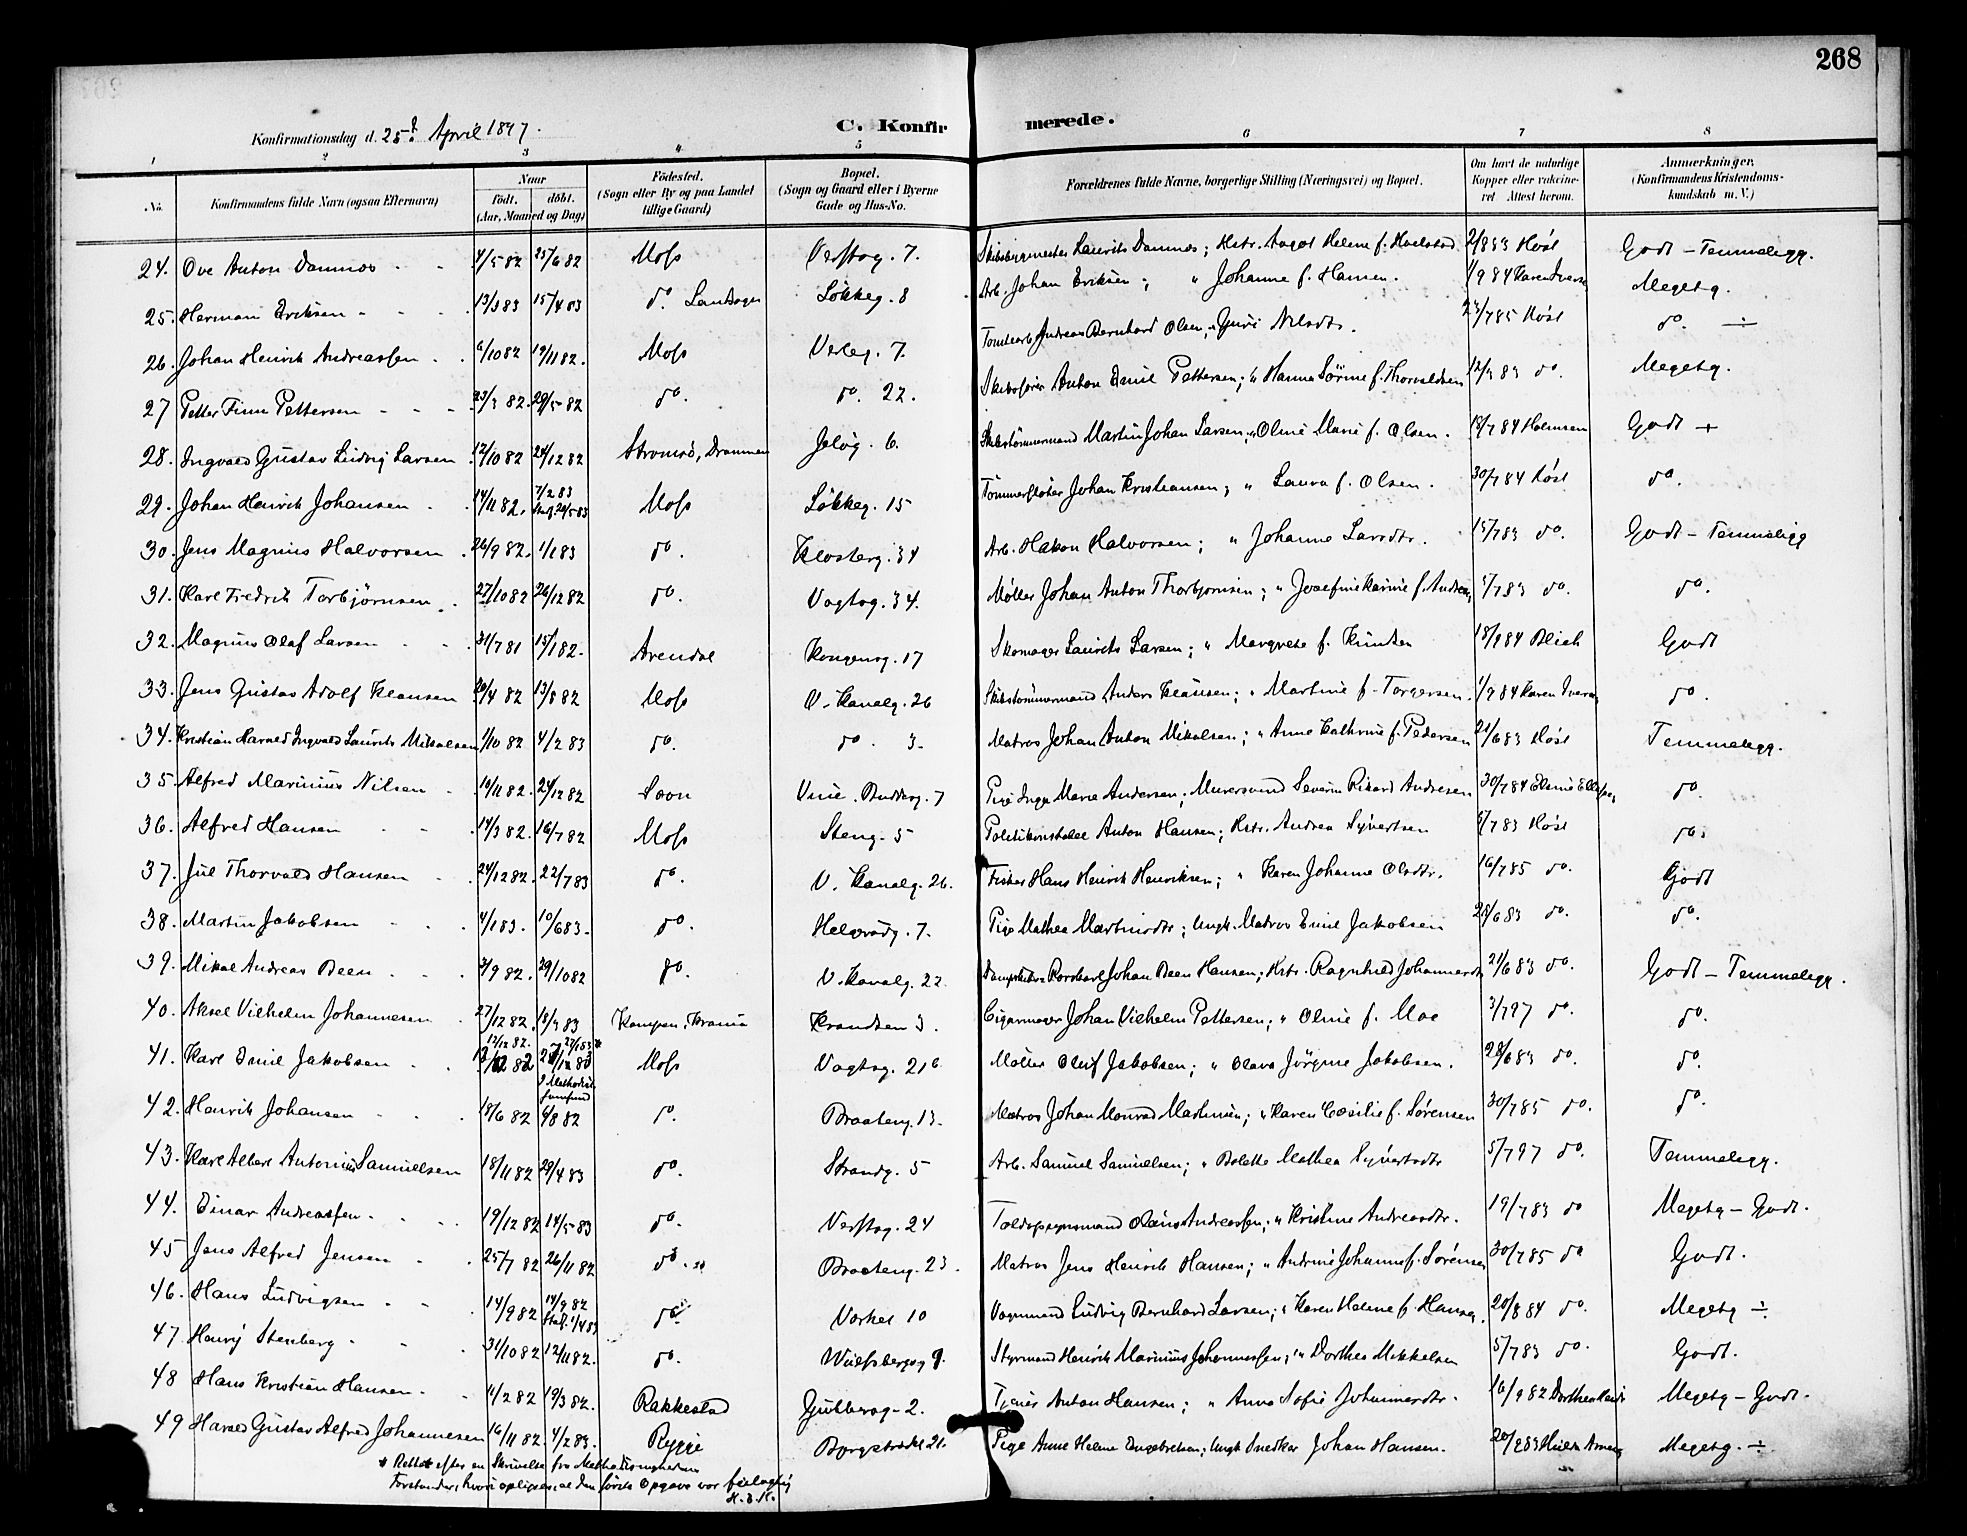 268
Konfirmationsdag d. 25. April 1897.
C. Konfirmerede.
1 2 3 4 5 6 7 8
No. Konfirmandens fulde Navn (ogsaa Efternavn) Naar født. døbt. (Aar, Maaned og Dag) Fødested. (Sogn eller By og paa Landet tillige Gaard) Bopæl. (Sogn og Gaard eller i Byerne Gade og Hus-No. Forældrenes fulde Navne, borgerlige Stilling (Næringsvei) og Bopæl. Om havt de naturlige Kopper eller vaccineret Attest herom. Anmærkninger. (Konfirmandens Kristendomskundskab m. V.)
24. Ove Anton Damnos 4/5 82 25/6 82 Moss Verftsg. 7. Skibsbygmester Laurits Damnos; Hstr. Aagot Helene f. 2/8 83 Høst Godt - Temmeligg.
25. Herman Eriksen 13/3 83 15/4 83 do. Landsogn Løkkeg. 8 Arb. Johan Eriksen; " Johanne f. Hansen. 1/9 84 Karen Iversen Megetg.
26. Johan Henrik Andreassen 6/10 82 19/11 82. Moss Verleg. 7. Tomtearb. Andreas Bernhard Olsen, " Guri Nilsdtr. 23/7 85 Høst do. ÷
27 Petter Finn Pettersen 23/3 82. 29/5 82 do. do. 22. Skibsfører Anton Emil Pettersen; " Hanna Sörine f. Thorvaldsen 12/3 83 do. Megetg.
28. Ingvald Gustav Ludvig Larsen 12/10 82 24/12 82 Strømsø, Drammen Jeløg. 6. Skibstømmermand Martin Johan Larsen, " Oline Marie f. Olsen. 18/7 84 Helmsen Godt +
29. Johan Henrik Johansen 14/11 82. 7/2 83 Stad. 20/5 83 Moss Løkkeg. 15 Tømmerfløter Johan Kristiansen; " Laura f. Olsen. 30/7 84 Høst do.
30. Jens Magnus Halvorsen 26/9 82. 1/1 83 do. Klosterg. 34 Arb. Hakon Halvorsen; " Johanne Larsdtr. 15/7 83 do. Godt - Temmeligg
31. Karl Fredrik Torbjørnsen 27/10 82 26/12 82 do. Vogtsg. 34. Møller Johan Anton Thorbjørnsen; " Josefine Karine f. Andreas 5/7 83 do. do.
32. Magnus Olaf Larsen 31/7 81 15/1 82. Arendal Kongensg. 17 Skomager Laurits Larsen; " Margrete f. Knudsen 18/9 84 Blich Godt
33. Jens Gustav Adolf Klausen 20/4 82 13/8 82 Moss V. Kanalg. 26 Skibstømmermand Anders Klausen; " Martine f. Torgersen. 1/9 84 Karen Iversen do.
34. Kristian Harald Ingvald Laurits Mikalsen 1/10 82 4/2 83 do. do. 3. Matros Johan Anton Mikalsen; " Anne Kathrine f. Pedersen 21/6 83 Høst Temmeligg.
35. Alfred Marinius Nilsen 10/11 82. 24/12 82 Soon Vine. 7 Pige Inga Marie Andersen; Murersvend Severin Rikard Andresen 30/7 84 do.
36. Alfred Hansen 14/3 82. 16/7 82 Moss Steng. 5 Politikonstabel Anton Hansen; Hstr. Andrea Syvertsen 5/7 83 Høst do.
37. Jul Thorvald Hansen 24/12 82. 22/7 83 do. V. Kanalg. 26. Fisker Hans Henrik Henriksen; " Karen Johanne Olsdtr. 16/7 85 do. Godt
38. Martin Jakobsen 4/1 83. 10/6 83. do. Helgerødg. 7. Pige Mathea Martinsdtr; Ungk. Matros Emil Jakobsen 28/6 83 do. do.
39. Mikal Andreas Been 3/9 82. 29/10 82 do. V. Kanalg. 22 Rorskarl Johan Been Hansen; Hstr. Ragnhild Johannesdtr 21/6 83 do. Godt - Temmeligg.
40. Aksel Vilhelm Johannesen 27/12 82. 18/3 83 Kampen, Krania Krandsen 3. Cigarmager Johan Vilhelm Pettersen; " Oline f. Moe 3/7 97 do. do.
12/12 82. 27/1 83 *
41. Karl Emil Jakobsen Moss Vogtsg. 21b Møller Oluf Jakobsen; " Olava Jörgine Jakobsen. 28/6 83 do. do.
I Methodist Samfund
42. Henrik Johansen 18/6 82 6/8 82 do. Braateng. 13. Matros Johan Monrad Mathisen; " Karen Cæsilie f. Sørensen 30/7 85 do. do.
43. Karl Albert Antonius Samuelsen 18/11 82 29/4 83 do. Strandg. 5 Arb. Samuel Samuelsen; " Bolette Mathea Syvertsdtr 5/7 97 do. Temmeligg.
44. Einar Andreassen 19/12 82 14/5 83 do. Verftsg. 24 Toldopsynsmand Andreassen; " Kristine Andreasdtr. 19/7 83 do Megetg - Godt.
45 Jens Alfred Jensen 25/7 82 26/11 82 do. Braateng. 23. Matros Jens Henrik Hansen; " Andrine Johanne f. Sørensen 30/7 85 do Godt.
46. Hans Ludvigsen 14/9 82 14/9 82 Stad. 1/4 83 do. Værket 10 Vognmand Ludvig Bernhard Larsen; " Karen Helene f. Hansen. 20/8 84 do. Megetg ÷
47. Henrÿ Stenberg 31/10 82 12/11 82. do. Wulfsbergsg 9. Styrmand Henrik Marinius Johannessen; " Dorthea Mikkelsen 5/7 83 do. Godt.
48 Hans Kristian Hansen 11/2 82 19/3 82. Rakkestad Gubberog. 2. Tjener Anton Hansen; " Anna Sofie Johannesdtr. 16/9 82 Megetg - Godt.
49 Harald Gustav Alfred Johannesen 16/11 82. 4/2 83. Rygge 21. Pige Anne Helene Engebretsen; Ungk. Snedker Johan Hansen. 20/9 83 Megetg. ÷
* Rettet efter en Skrivelse fra Methodistmenighedens
Forstander, hvori oplyses, at den første Opgave var feilagtig
H. B. K.